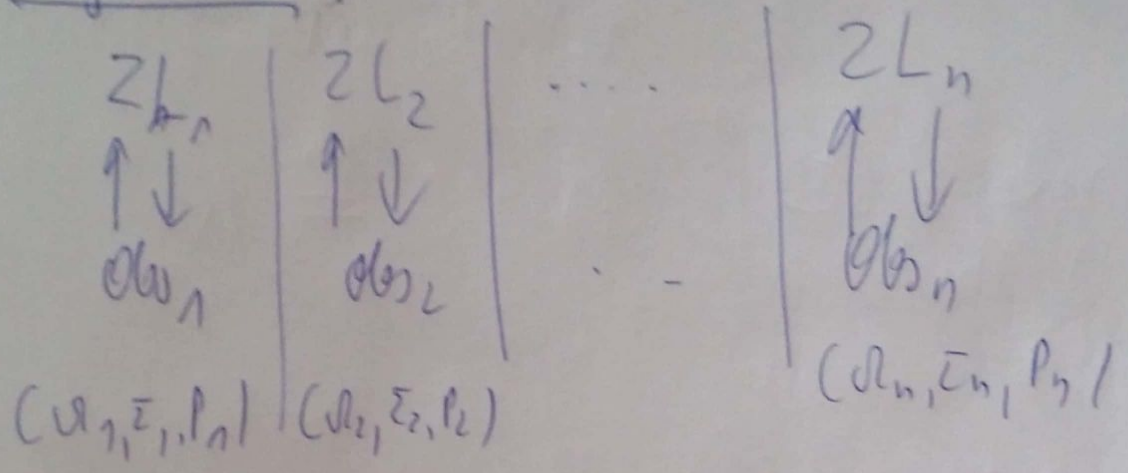 ZL₁ | ZL₂ | ..... | ZLₙ
↑↓ | ↑↓ | | ↑↓
Obs₁ | Obs₂ | . - | Obsₙ
(Ω₁, Σ₁, P₁) | (Ω₂, Σ₂, P₂) (Ωₙ, Σₙ, Pₙ)